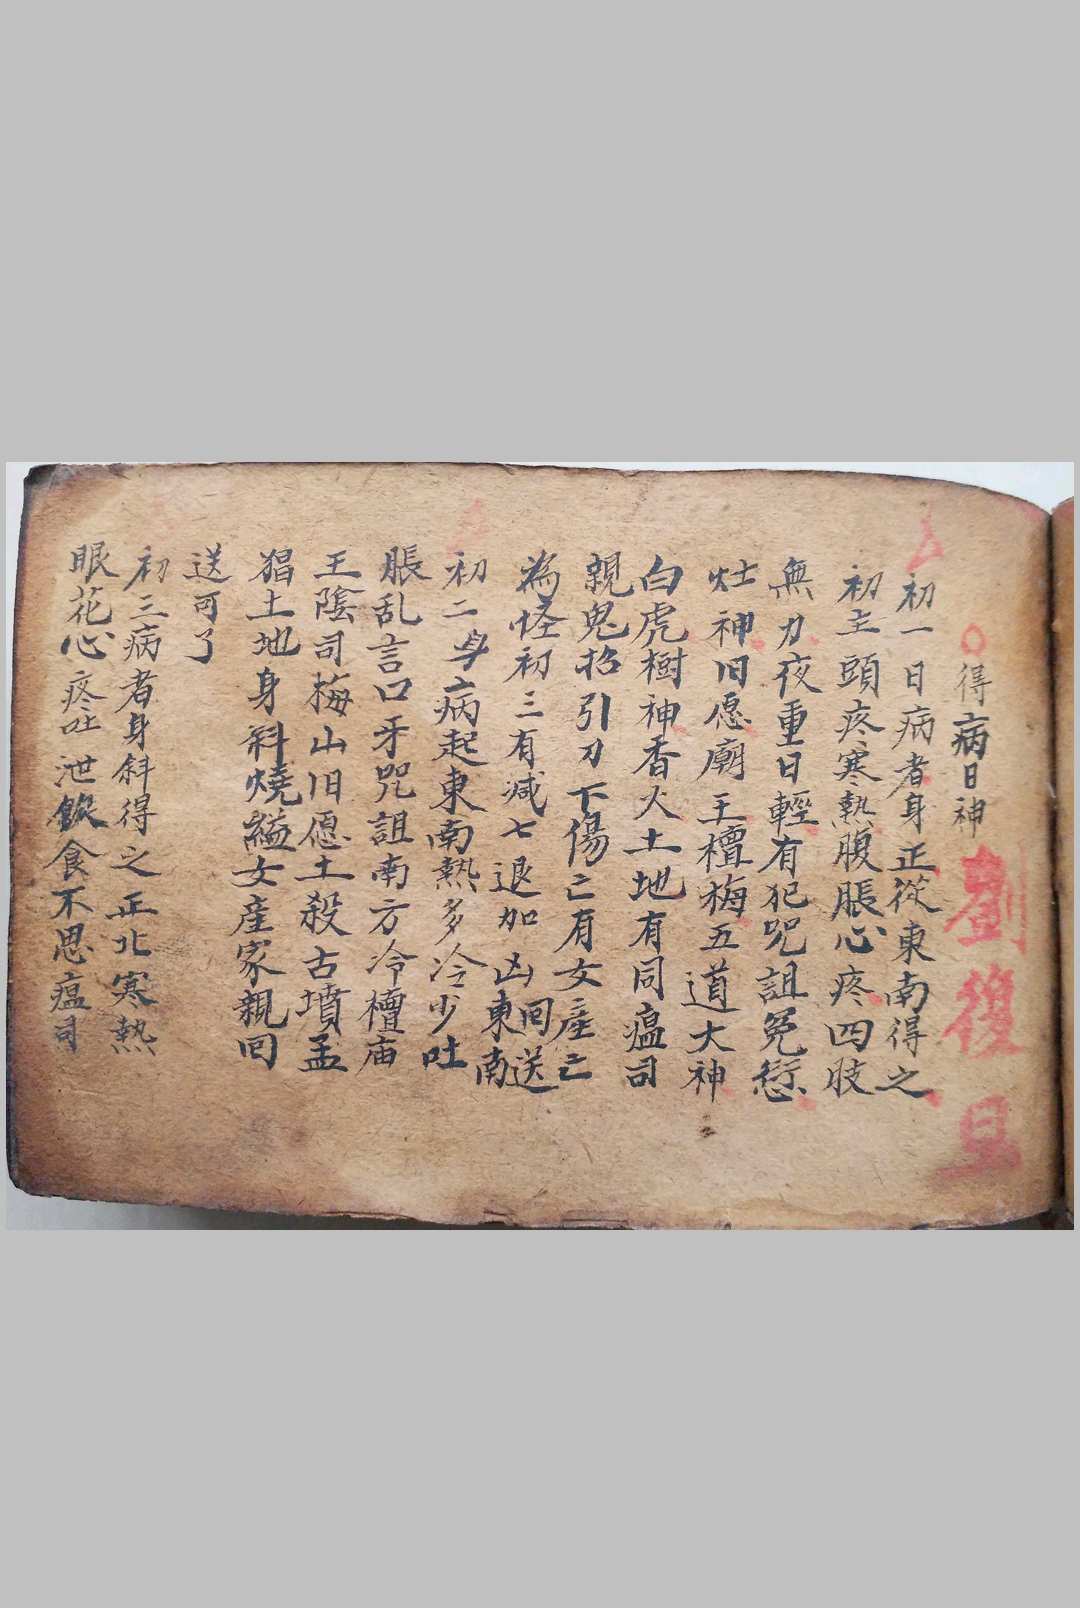 得病日神 劉復旦
初一日病者身正從東南得之
初主頭疼寒熱腹脹心疼四肢
無力夜重日輕有犯咒詛冤愆
灶神旧愿廟王檀梅五道大神
白虎樹神香火土地有同瘟司
親鬼招引刀下傷亡有女產亡
為怪初三有減七退加凶東南回送
初二身病起東南熱多冷少吐
脹乱言口牙咒詛南方冷檀庙
王陰司梅山旧愿土殺古墳孟
猖土地身科燒縊女產家親回
送可了
初三病者身斜得之正北寒熱
眼花心疼吐泄飲食不思瘟司